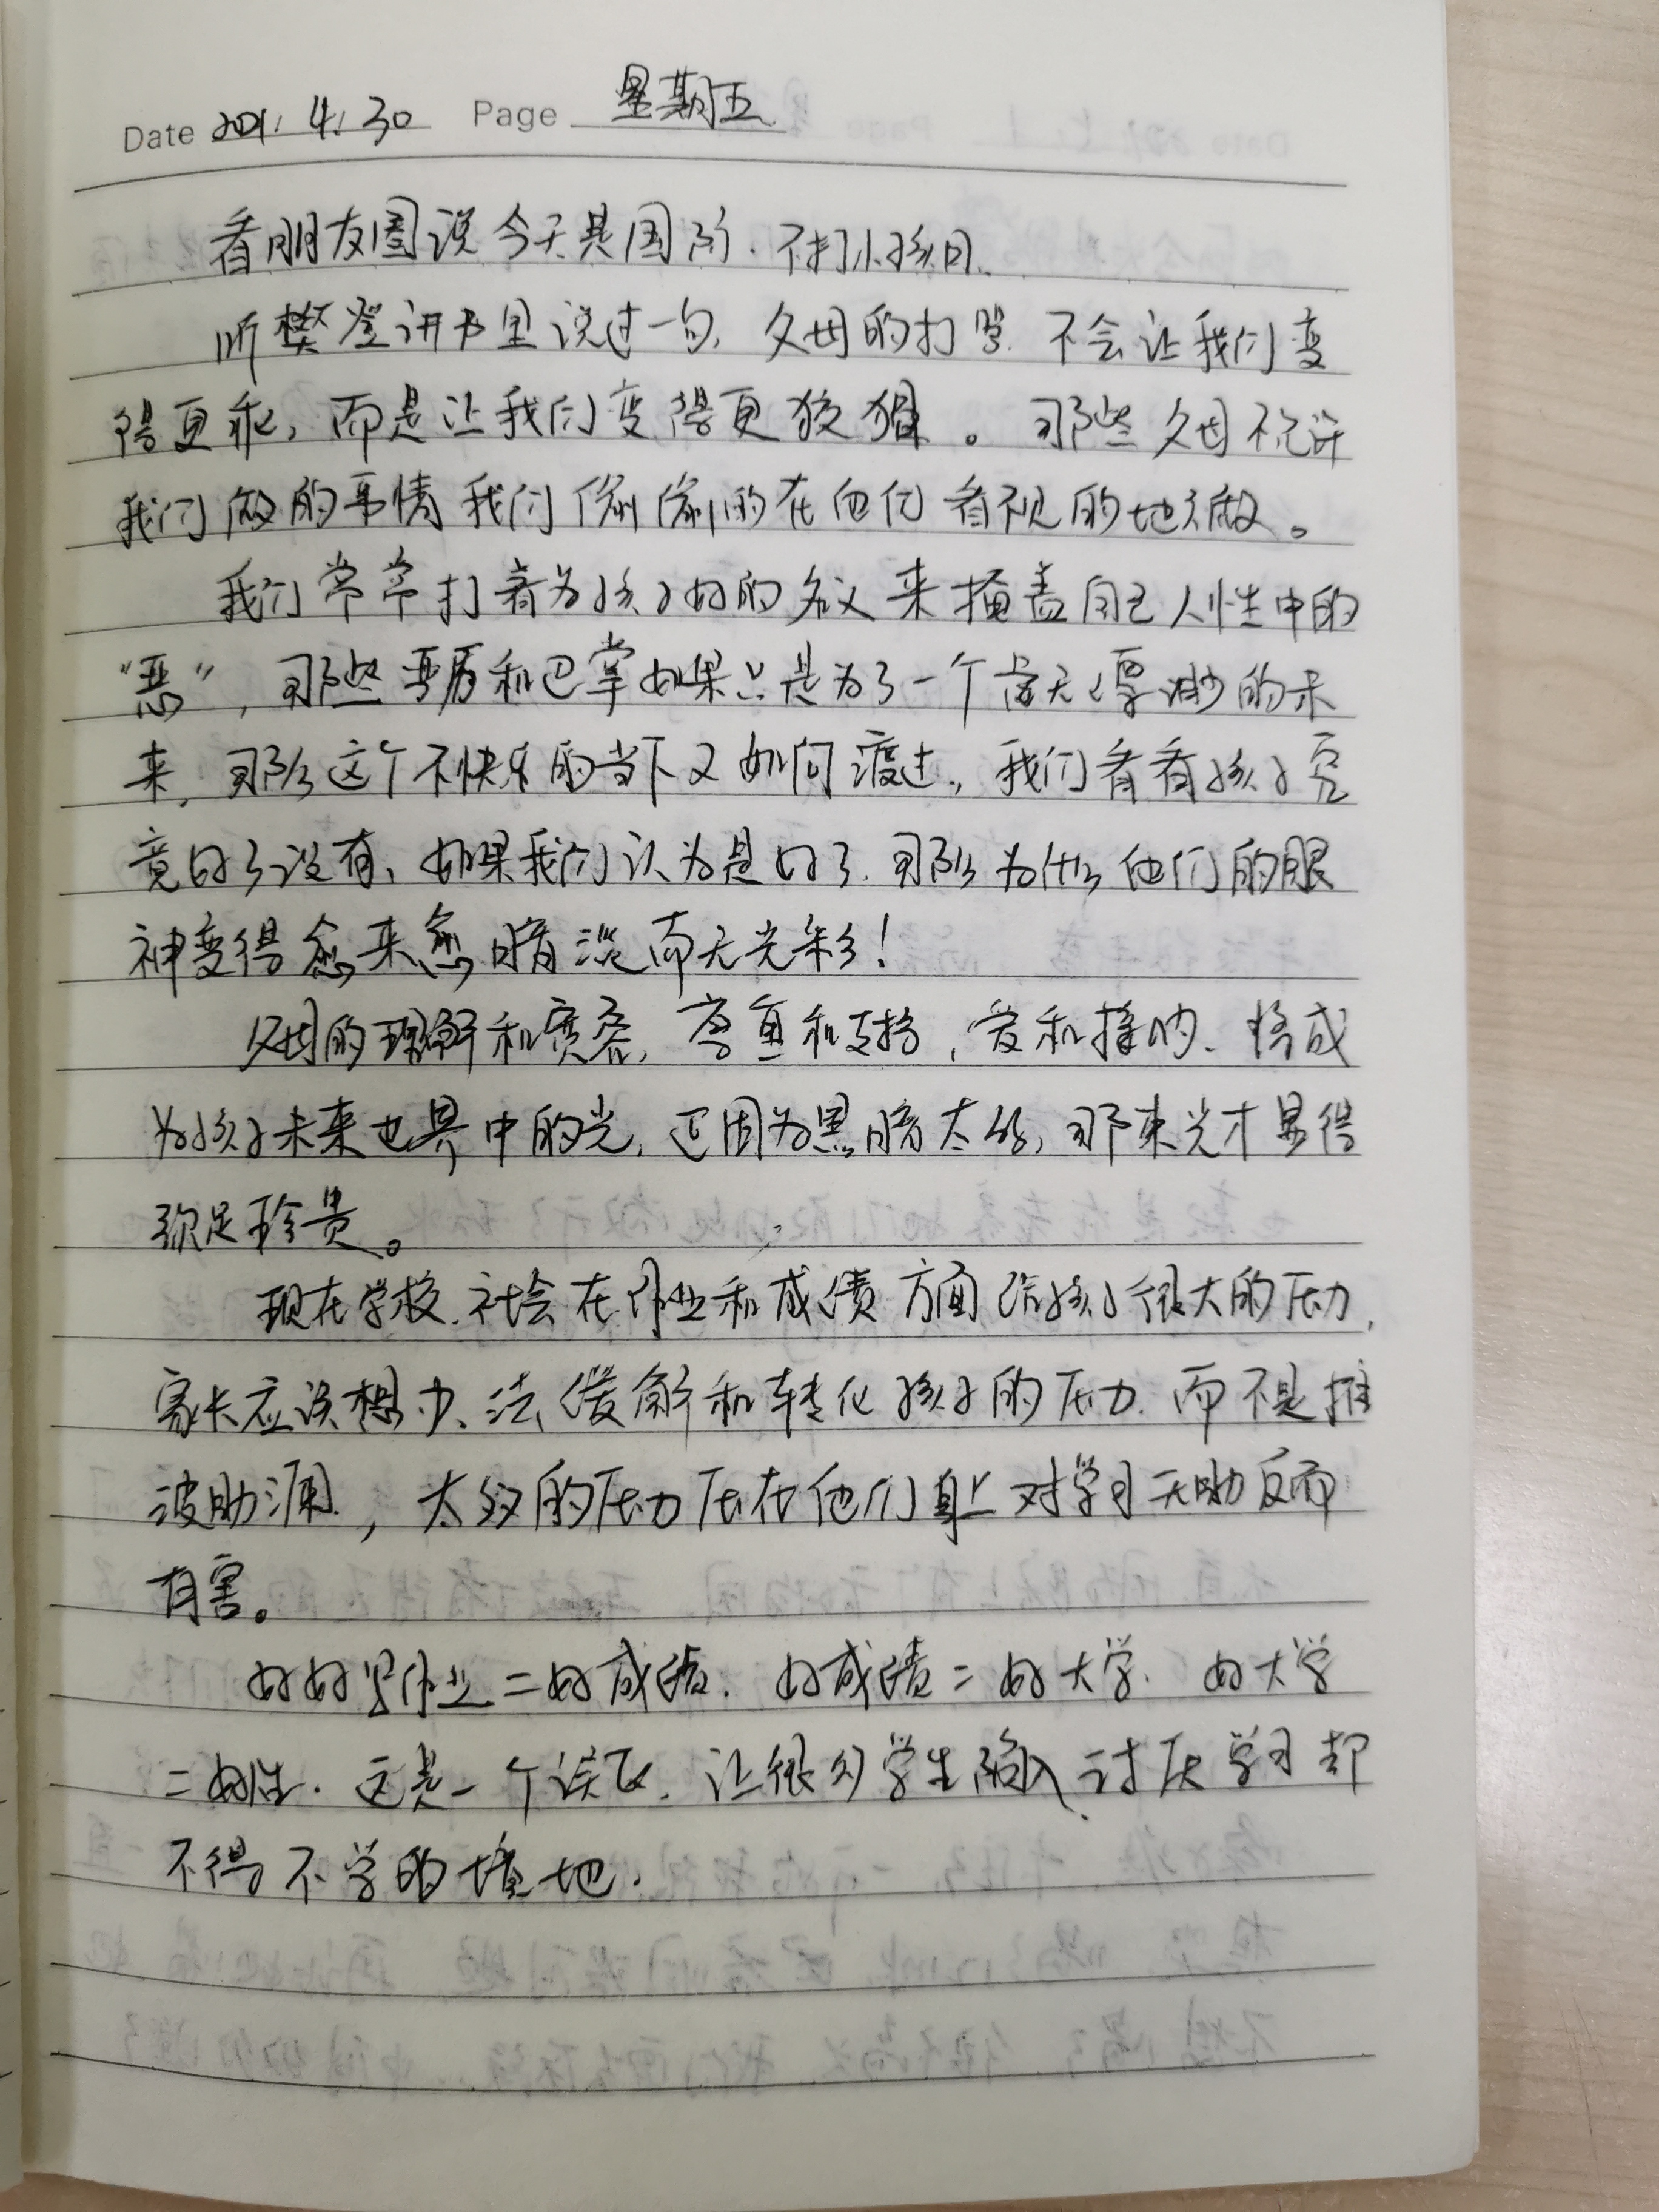 Date 2021.4.30 Page 星期五
看朋友圈说今天是国际.不打小孩日.
听樊登讲书里说过一句,父母的打骂.不会让我们变
得更乖,而是让我们变得更狡猾。那些父母不允许
我们做的事情我们偷偷的在他们看不见的地方做。
我们常常打着为孩子好的名义来掩盖自己人性中的
"恶",那些严厉和巴掌如果只是为了一个虚无缥缈的未
来,那么这个不快乐的当下又如何渡过,我们看看孩子究
竟好了没有,如果我们认为是好了.那么为什么他们的眼
神变得愈来愈暗淡而无光彩!
父母的理解和宽容,尊重和支持,爱和接纳、将成
为孩子未来世界中的光,正因为黑暗太多,那束光才显得
弥足珍贵。
现在学校.社会在作业和成绩方面给孩子很大的压力,
家长应该想办法缓解和转化孩子的压力.而不是推
波助澜,太多的压力压在他们身上对学习无助反而
有害。
好好写作业=好成绩.好成绩=好大学.好大学
=好人生.这是一个误区.让很多学生陷入讨厌学习却
不得不学的境地.